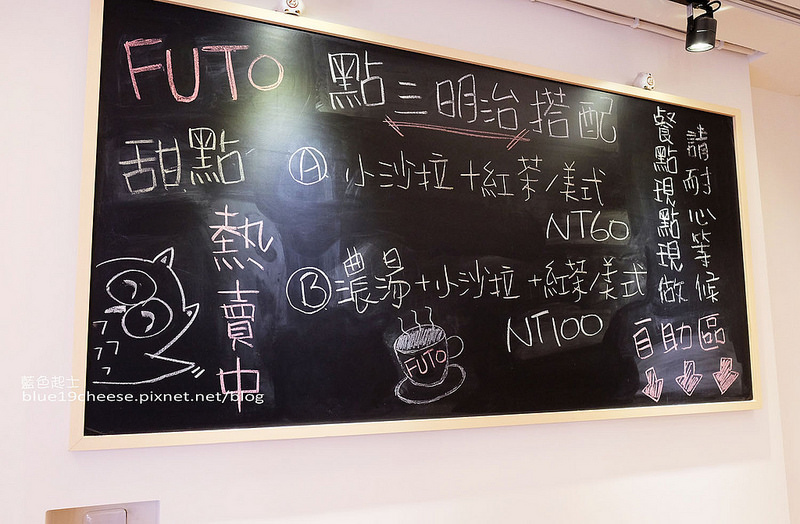 FUTO
甜點
熱賣中
點三明治搭配
A 小沙拉+紅茶/美式
NT60
B 濃湯+小沙拉+紅茶/美式
NT100
FUTO
請耐心等候
餐點現點現做
自助區
藍色起士
blue19cheese.pixnet.net/blog